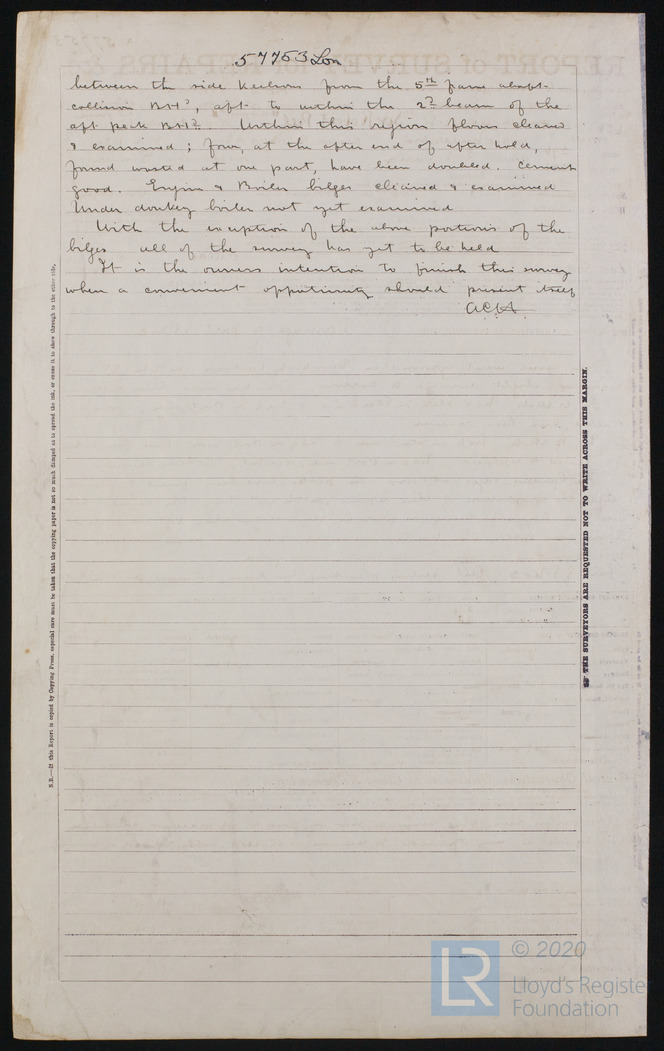 57753 Lon
between the side keelsons from the 5th frame abaft
collision BHd, aft to within the 2d beam of the
aft peak BHd. Within this region floors cleaned
& examined; four, at the after end of after hold,
found wasted at one part, have been doubled. Cement
good. Engine & Boiler bilges cleaned & examined
Under donkey boiler not yet examined
With the exception of the above portions of the
bilges all of the survey has yet to be held
It is the owners intention to finish this survey
when a convenient opportunity should present itself
N.B.—If this Report is copied by Copying Press, especial care must be taken that the copying paper is not so much damped as to spread the ink, or cause it to show through to the other side.
☞ THE SURVEYORS ARE REQUESTED NOT TO WRITE ACROSS THIS MARGIN.
REPORT of SURVEY for REPAIRS &c
LR
© 2020
Lloyd's Register
Foundation